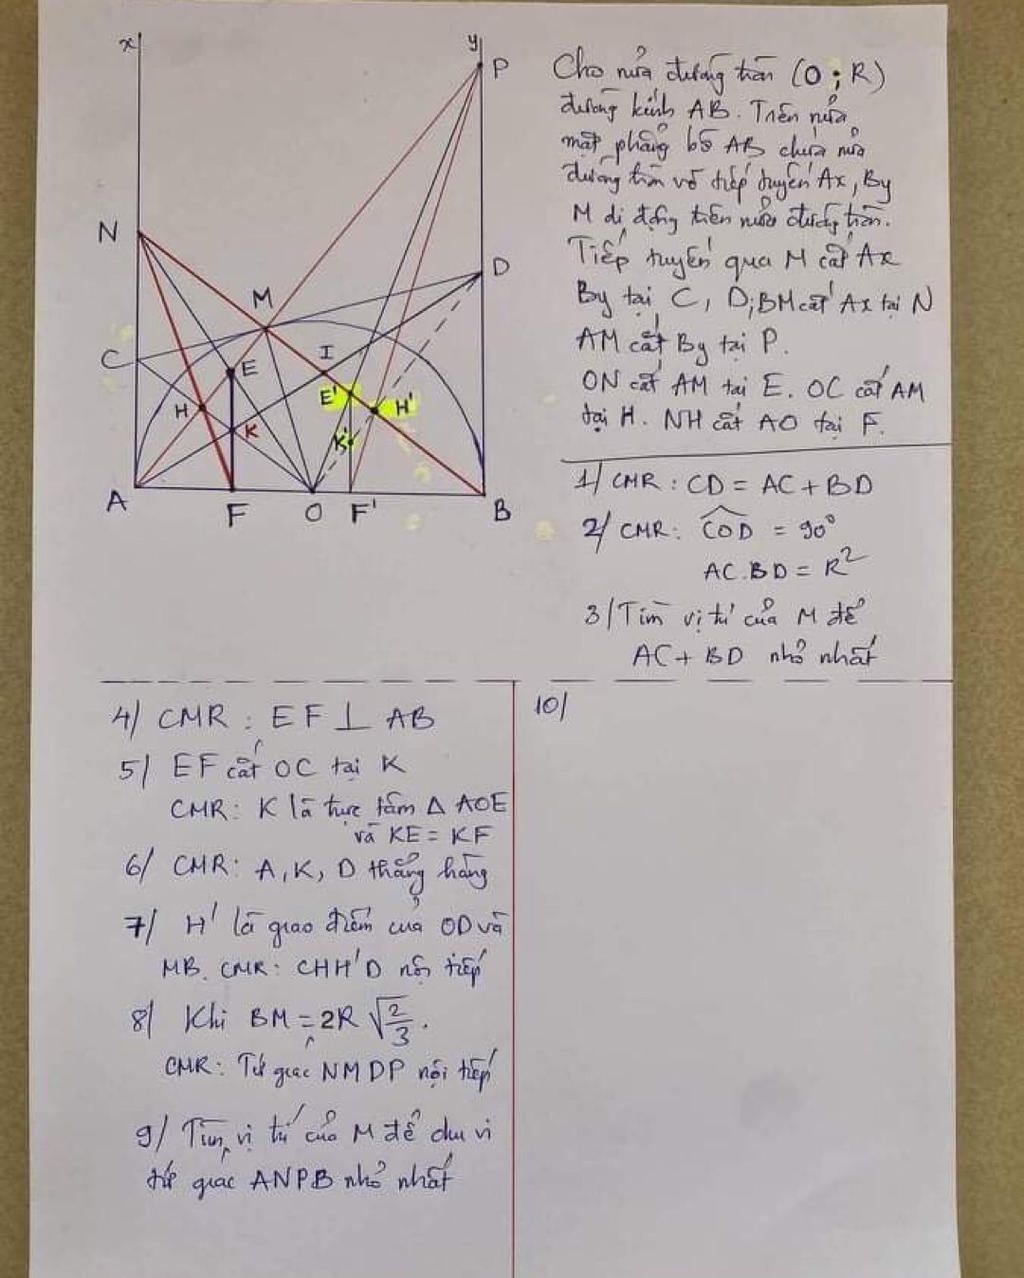 x
y
P
N
D
M
C
I
E
E'
H
H'
K
K'
A
F
O
F'
B
Cho nửa đường tròn (O ; R)
đường kính AB. Trên nửa
mặt phẳng bờ AB chứa nửa
đường tròn vẽ tiếp tuyến Ax, By
M di động trên nửa đường tròn.
Tiếp tuyến qua M cắt Ax
By tại C, D; BM cắt Ax tại N
AM cắt By tại P.
ON cắt AM tại E. OC cắt AM
tại H. NH cắt AO tại F.
1/ CMR : CD = AC + BD
2/ CMR: \widehat{COD} = 90°
AC.BD = R²
3/ Tìm vị trí của M để
AC + BD nhỏ nhất
4/ CMR : EF ⊥ AB
5/ EF cắt OC tại K
CMR: K là trực tâm Δ AOE
và KE = KF
6/ CMR: A, K, D thẳng hàng
7/ H' là giao điểm của OD và
MB. CMR: CHH'D nội tiếp
8/ Khi BM = 2R √(2/3).
CMR: Tứ giác NMDP nội tiếp
9/ Tìm vị trí của M để chu vi
tứ giác ANPB nhỏ nhất
10/